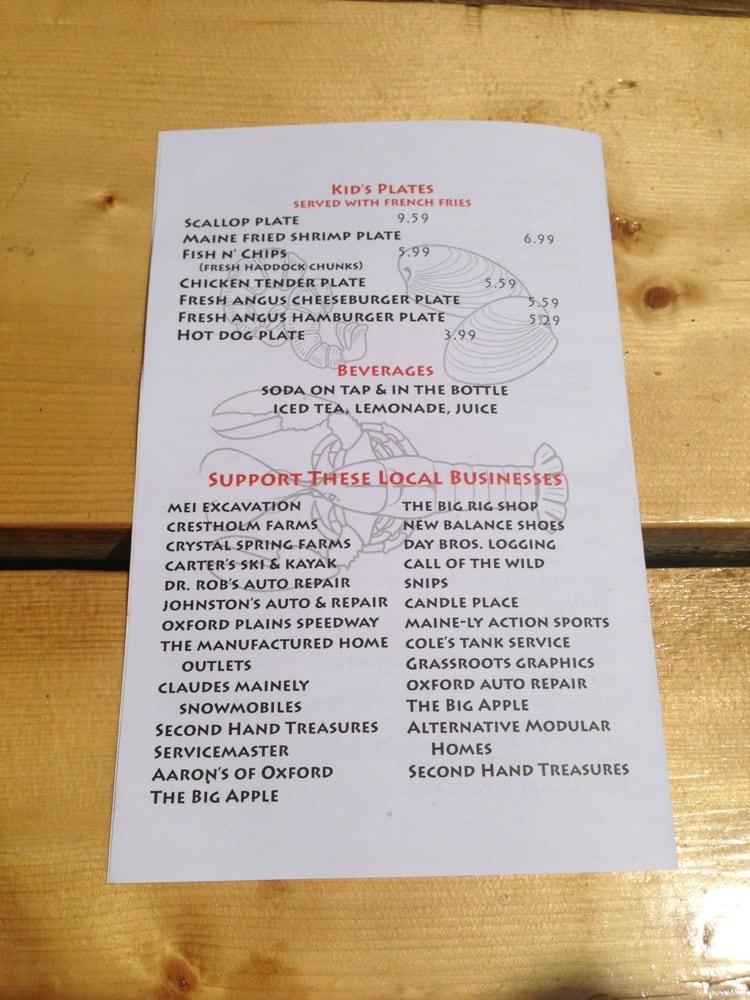 Kid's Plates
served with french fries
Scallop plate 9.59
Maine fried shrimp plate 6.99
Fish n' chips 5.99
(fresh haddock chunks)
Chicken tender plate 5.59
Fresh angus cheeseburger plate 5.59
Fresh angus hamburger plate 5.29
Hot dog plate 3.99
Beverages
soda on tap & in the bottle
iced tea, lemonade, juice
Support These Local Businesses
mei excavation
crestholm farms
crystal spring farms
carter's ski & kayak
dr. rob's auto repair
johnston's auto & repair
oxford plains speedway
the manufactured home
outlets
claudes mainely
snowmobiles
Second Hand Treasures
Servicemaster
Aaron's of Oxford
The Big Apple
the big rig shop
new balance shoes
day bros. logging
call of the wild
snips
candle place
maine-ly action sports
cole's tank service
grassroots graphics
oxford auto repair
The Big Apple
Alternative Modular
Homes
Second Hand Treasures